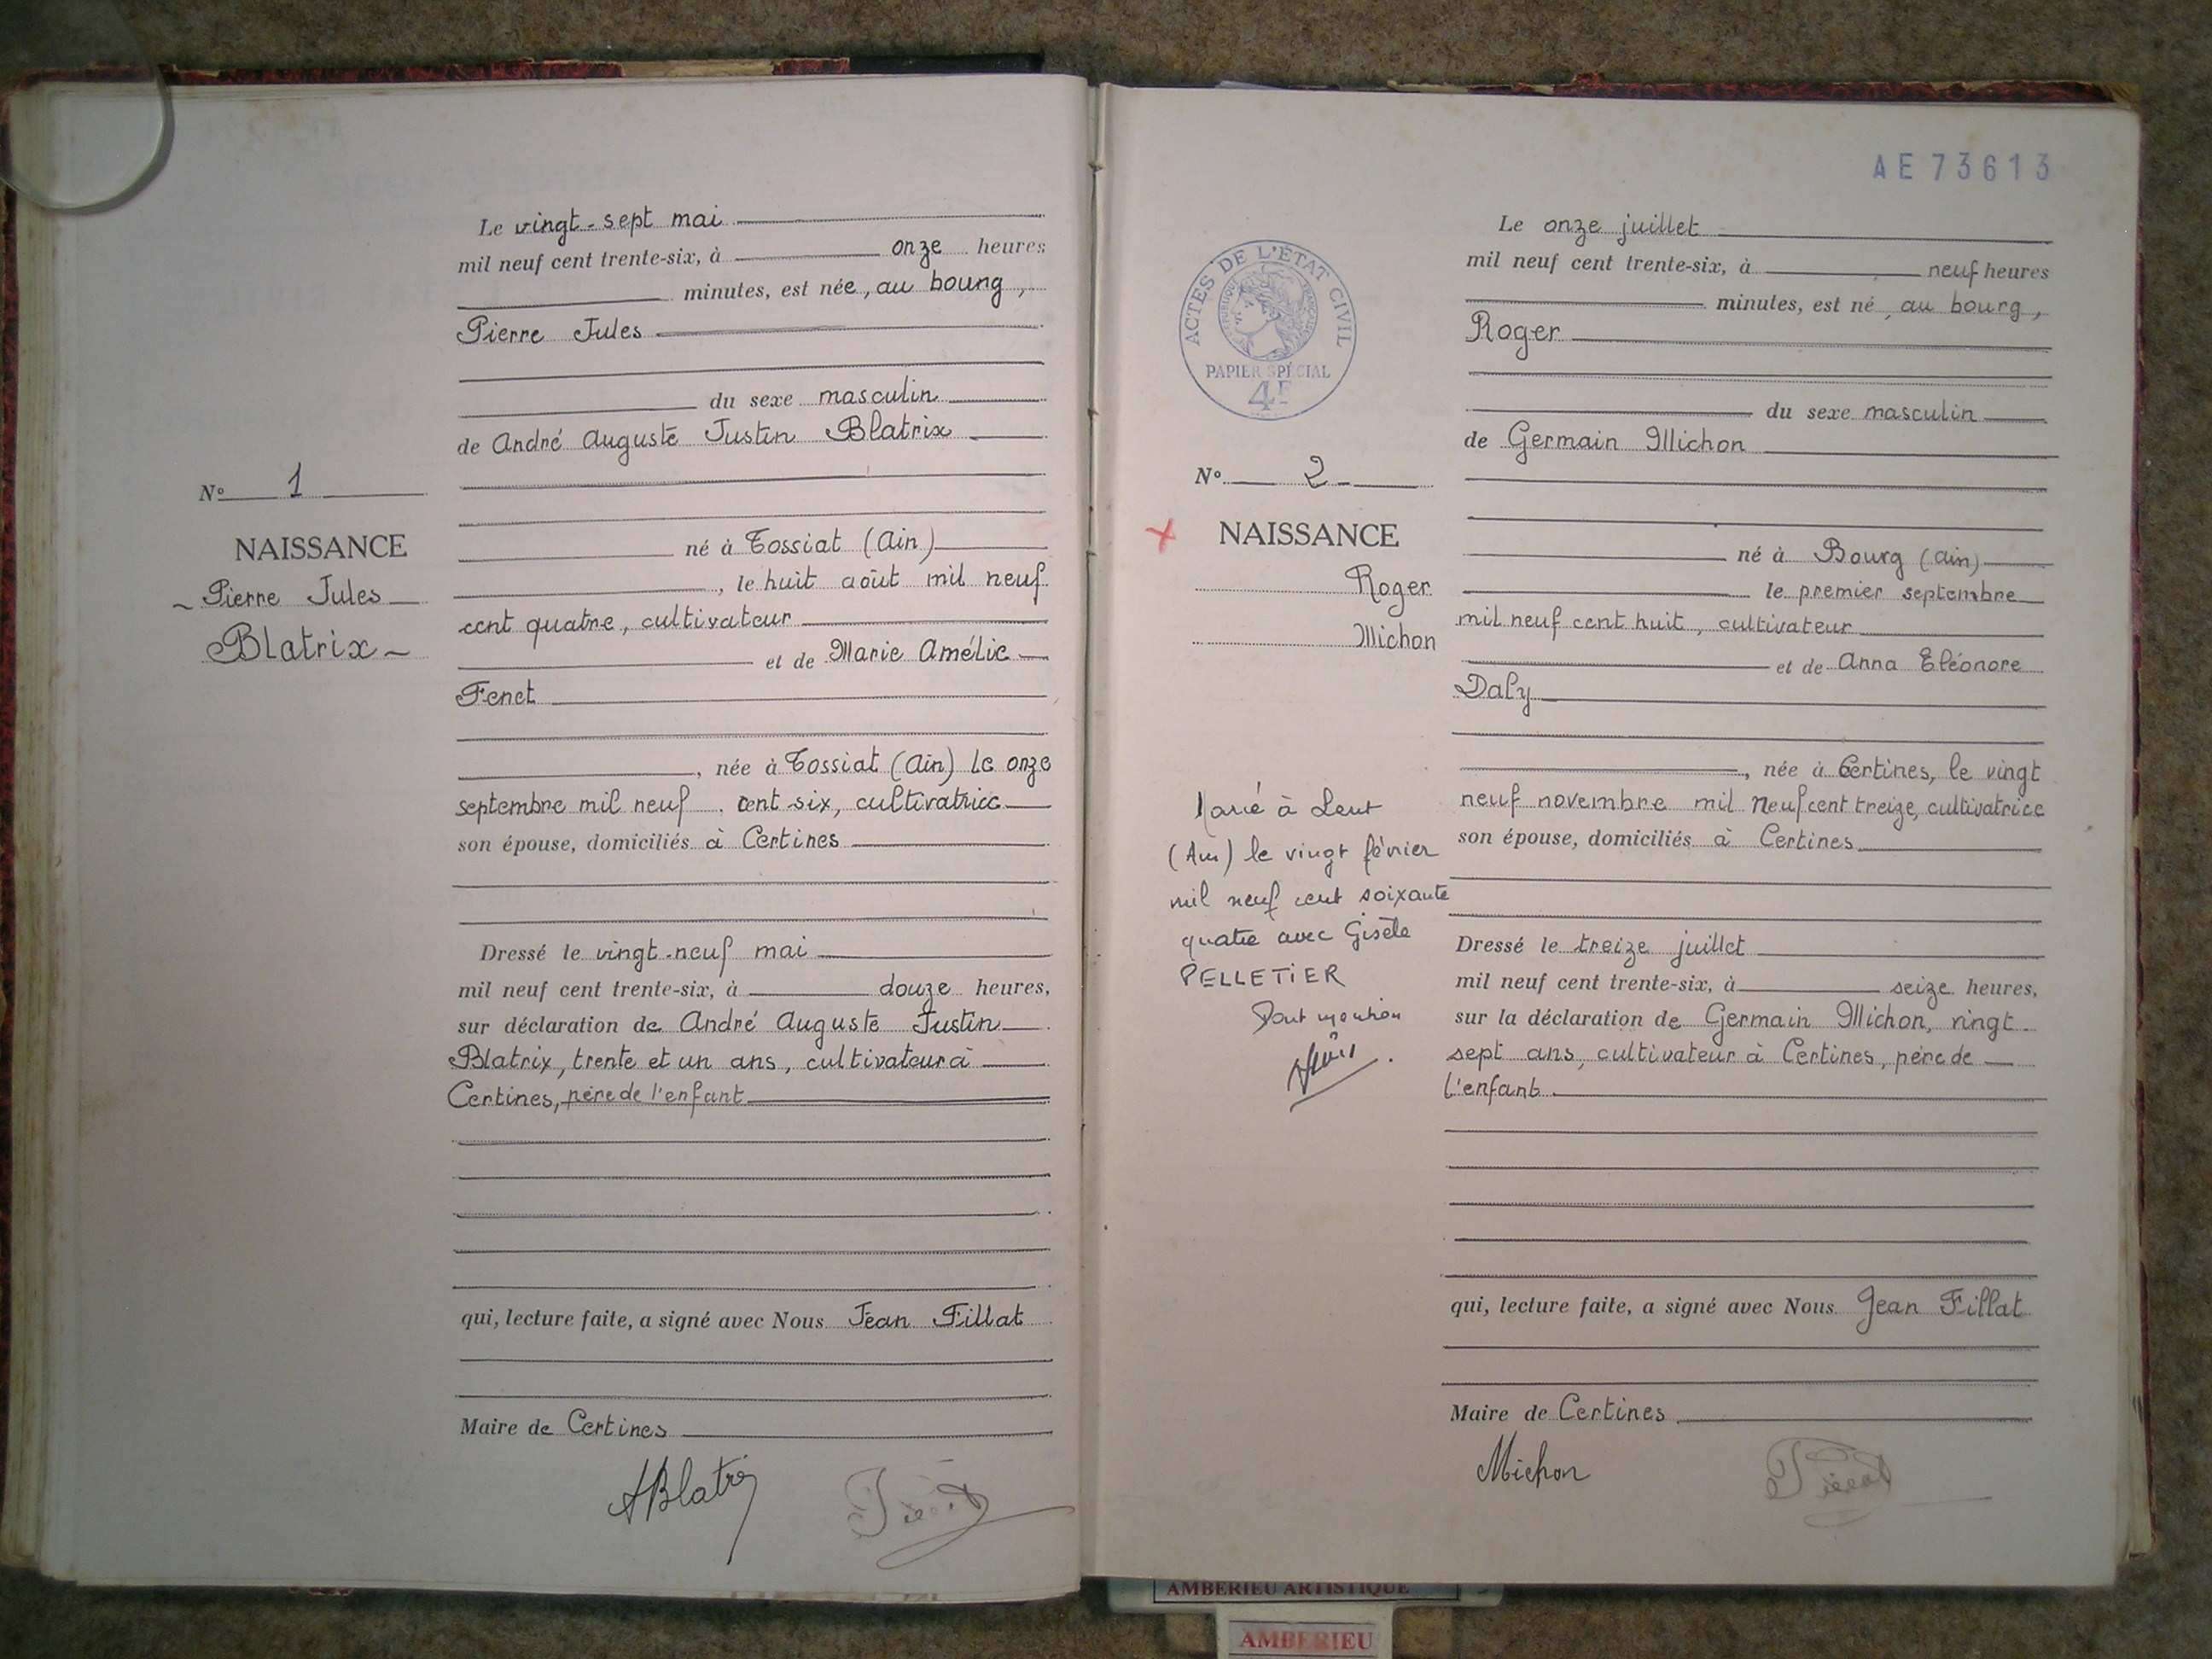 Le vingt-sept mai
mil neuf cent trente-six, à onze heures
minutes, est née, au bourg,
Pierre Jules
du sexe masculin
de André Auguste Justin Blatrix
né à Tossiat (Ain)
, le huit août mil neuf
cent quatre, cultivateur
et de Marie Amélie
Fenet
, née à Tossiat (Ain) le onze
septembre mil neuf cent six, cultivatrice
son épouse, domiciliés à Certines
Dressé le vingt-neuf mai
mil neuf cent trente-six, à douze heures,
sur déclaration de André Auguste Justin
Blatrix, trente et un ans, cultivateur à
Certines, père de l'enfant
qui, lecture faite, a signé avec Nous Jean Fillat
Maire de Certines
ABlatrix
No 1
NAISSANCE
Pierre Jules
Blatrix
AE73613
ACTES DE L'ÉTAT CIVIL
PAPIER SPÉCIAL
4F
No 2
NAISSANCE
Roger
Michon
Marié à Lent
(Ain) le vingt février
mil neuf cent soixante
quatre avec Gisèle
PELLETIER
Dont mention
Le onze juillet
mil neuf cent trente-six, à neuf heures
minutes, est né, au bourg,
Roger
du sexe masculin
de Germain Michon
né à Bourg (Ain)
le premier septembre
mil neuf cent huit, cultivateur
et de Anna Eléonore
Daly
, née à Certines, le vingt
neuf novembre mil neuf cent treize, cultivatrice
son épouse, domiciliés à Certines
Dressé le treize juillet
mil neuf cent trente-six, à seize heures,
sur la déclaration de Germain Michon, vingt-
sept ans, cultivateur à Certines, père de
l'enfant
qui, lecture faite, a signé avec Nous Jean Fillat
Maire de Certines
Michon
AMBERIEU ARTISTIQUE
AMBERIEU